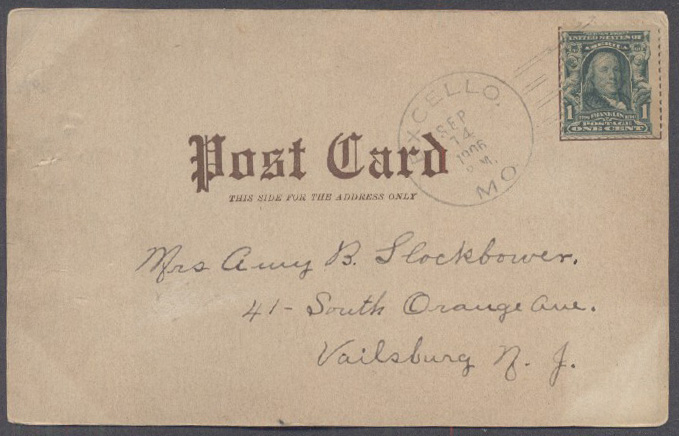 SERIES 1902
UNITED STATES OF
AMERICA
1 FRANKLIN 1
POSTAGE
ONE CENT
EXCELLO,
SEP
14
1906
P.M.
MO.
Post Card
THIS SIDE FOR THE ADDRESS ONLY
Mrs Amy B. Slockbower.
41- South Orange Ave.
Vailsburg N. J.